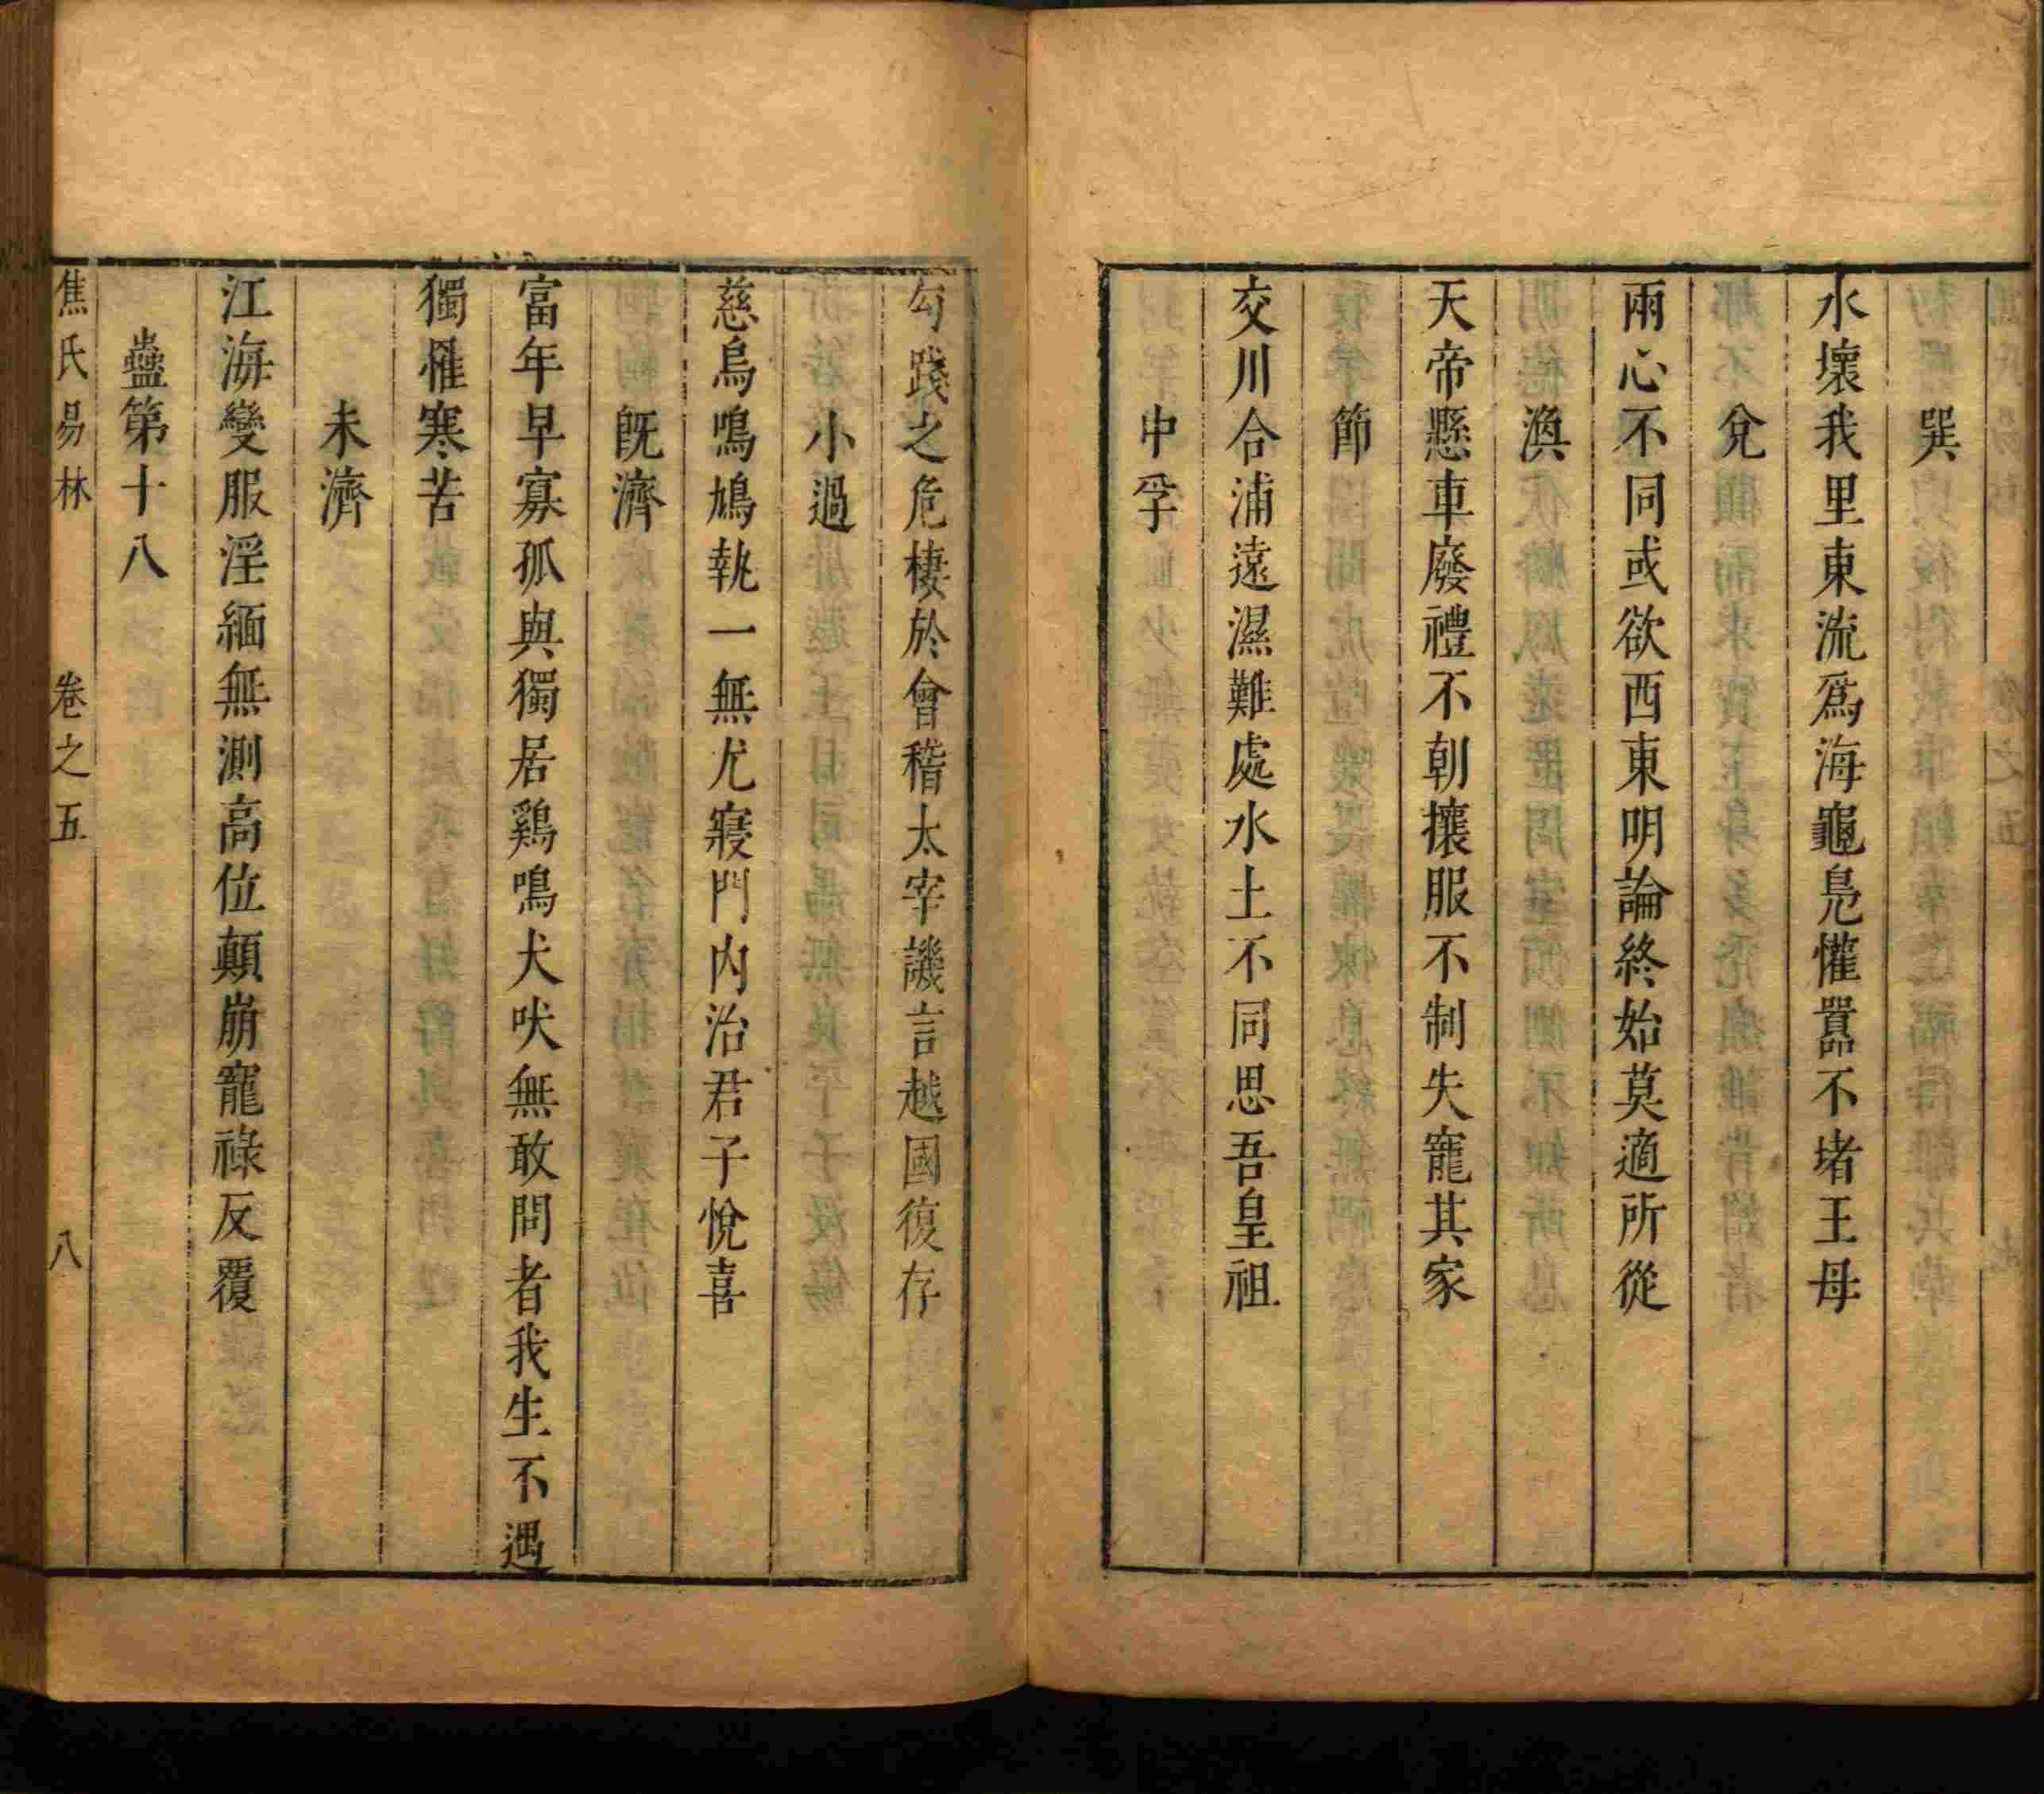 巽
水壞我里東流爲海龜鳧懽嚚不堵王母
兌
兩心不同或欲西東明論終始莫適所從
渙
天帝懸車廢禮不朝攘服不制失寵其家
節
交川合浦遠濕難處水土不同思吾皇祖
中孚
勾踐之危棲於會稽太宰譏言越國復存
小過
慈烏鳴鳩執一無尤寢門內治君子悅喜
旣濟
富年早寡孤與獨居鷄鳴犬吠無敢問者我生不遇
獨罹寒苦
未濟
江海變服淫緬無測高位顛崩寵祿反覆
蠱第十八
焦氏易林 卷之五 八